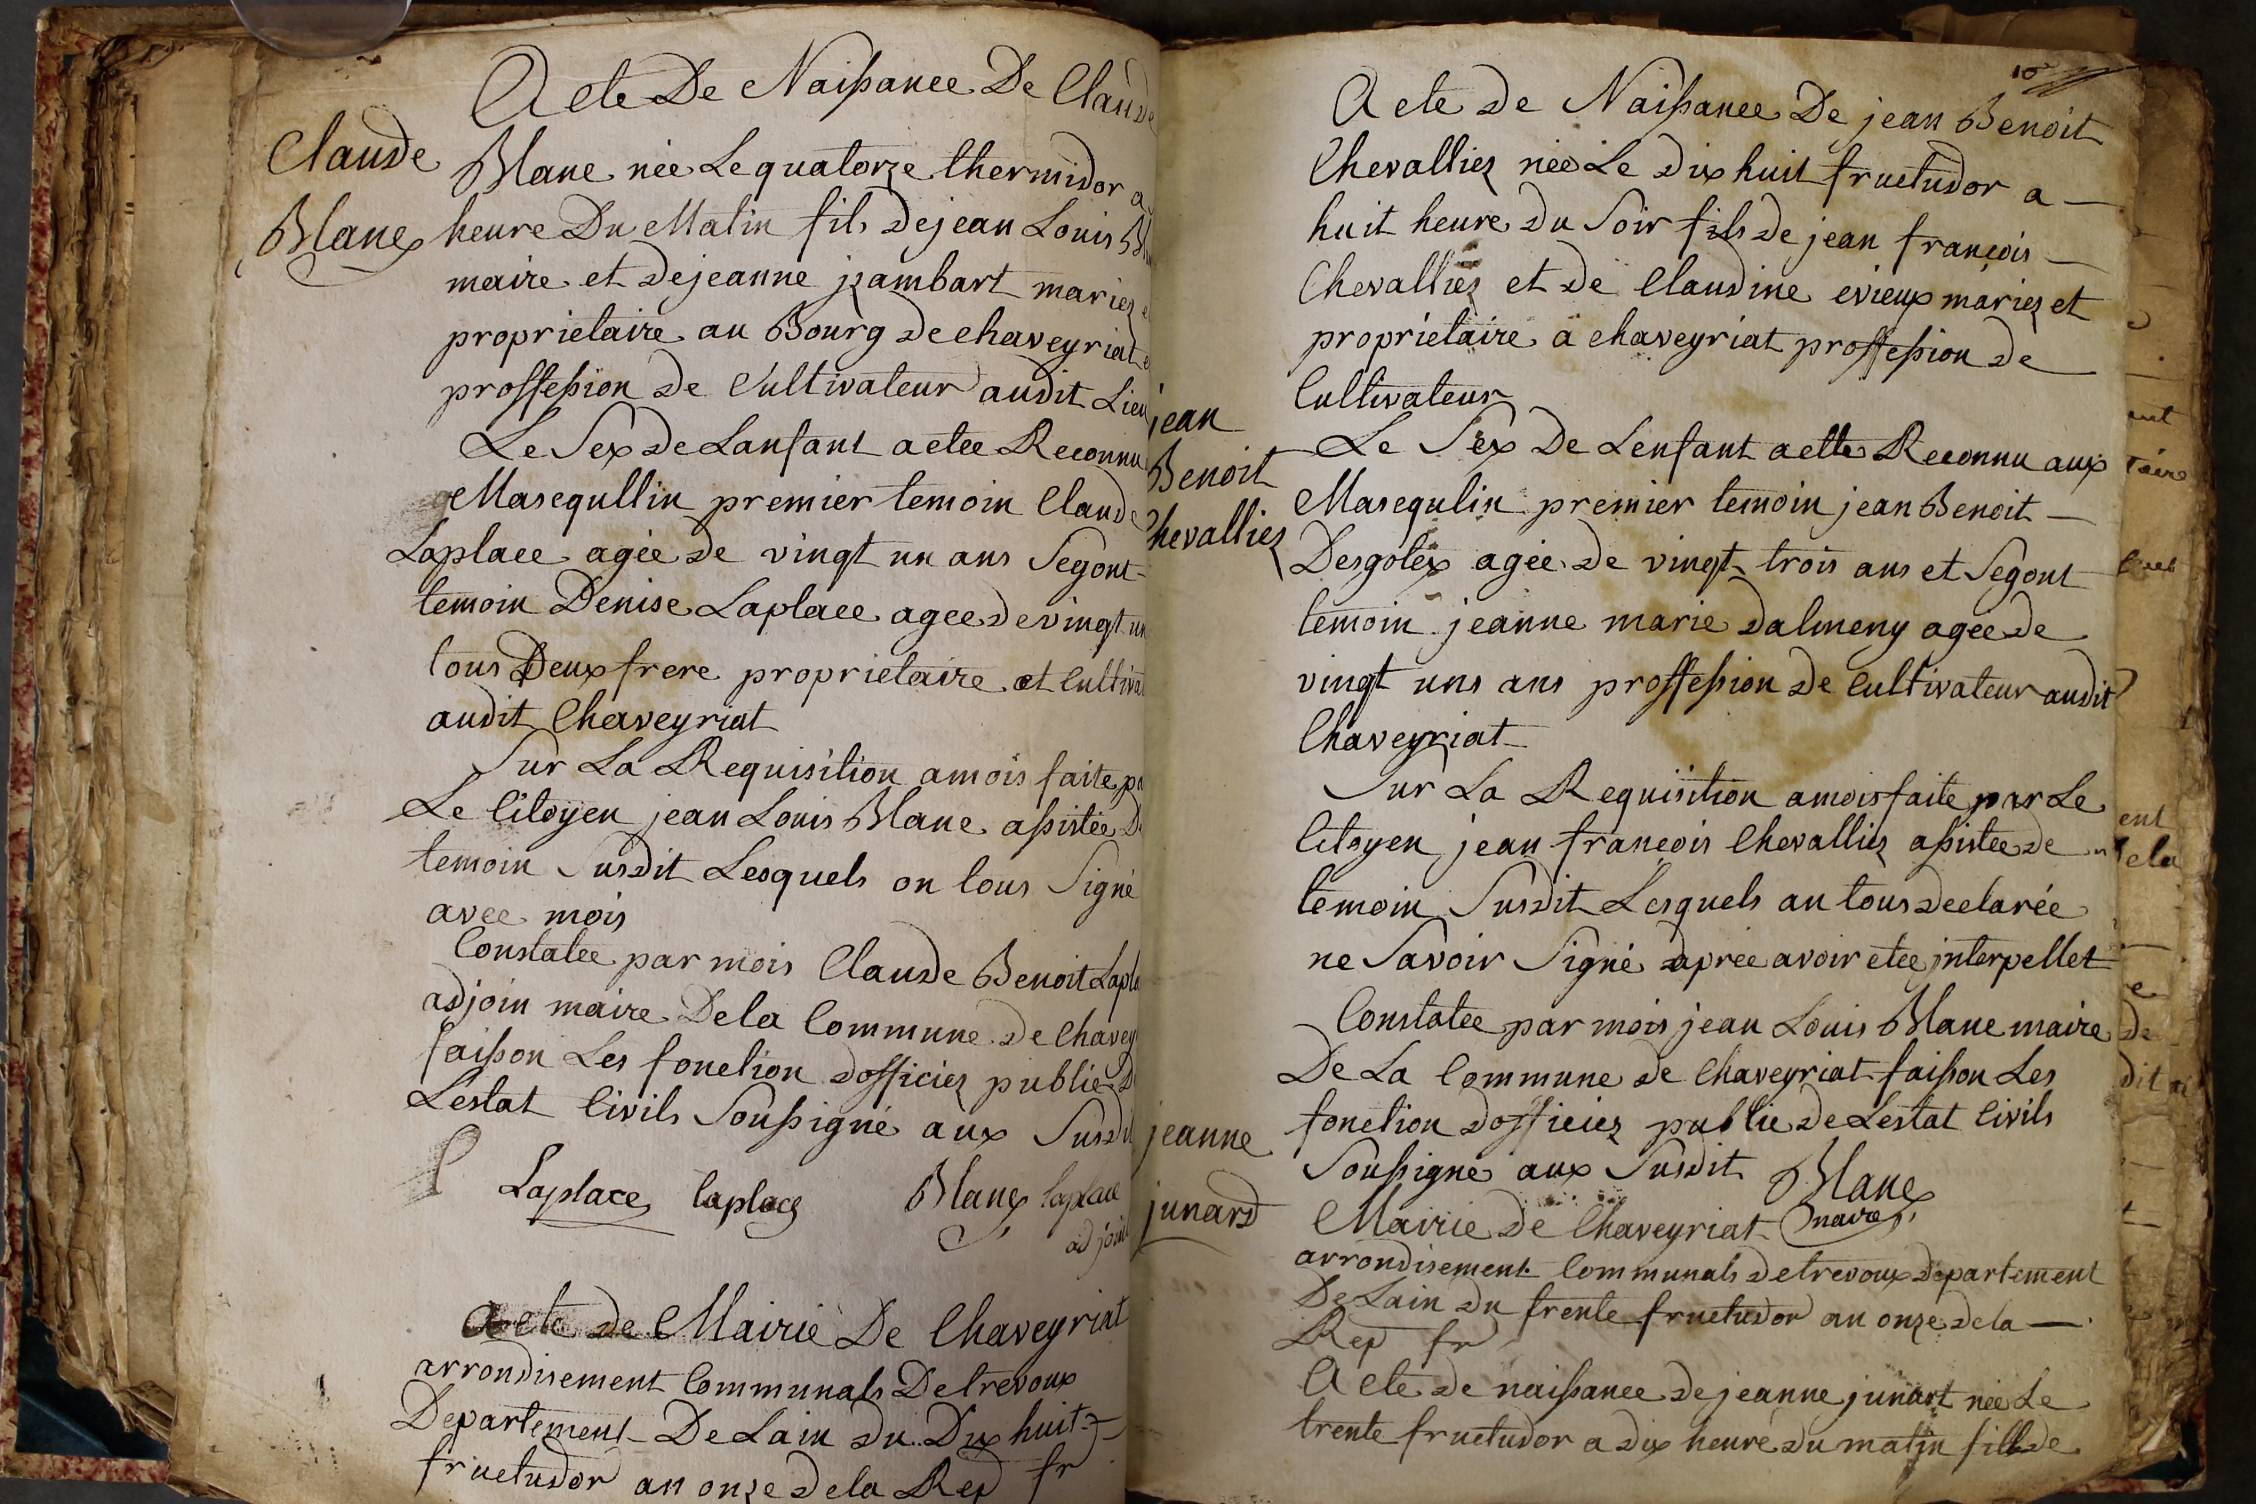 Claude
Blanc
Acte De Naissance De Claude
Blanc née Le quatorze thermidor a
heure Du Matin fils de jean Louis
maire et de jeanne jzambart mariez
proprietaire au Bourg de chaveyriat
proffession de Cultivateur audit Lieu
Le Sex de Lanfant a etee Reconnu
Masequllin premier temoin Claude
Laplace agée de vingt un ans Segont
temoin Denise Laplace agee de vingt un
tous Deux frere proprietaire et Cultivat
audit Chaveyriat
Sur La Requisition a mois faite par
Le Citoyen jean Louis Blanc assistée De
temoin Susdit Lesquels on tous Signé
avec mois
Constatee par mois Claude Benoit Lapla
adjoin maire De la Commune de Chavey
faisson Les fonction d'officiez publie De
Lestat Civils Soussigné aux Susdit
Laplace laplace Blanc laplace
adjoin
acte de Mairie De Chaveyriat
arrondisement Communals De trevoux
Departement De Lain du Dix huit
fructudor an onze de la Rep fr
10
Acte de Naissance De jean Benoit
Chevalliez née Le dix huit fructudor a
huit heure du Soir fils de jean françois
Chevalliez et de Claudine evieux mariez et
proprietaire a chaveyriat proffession de
Cultivateur
jean
Benoit
Chevalliez
Le Sex De Lenfant a ette Reconnu aux
Masequlin premier temoin jean Benoit
Desgotex agée de vingt trois ans et Segont
temoin jeanne marie dalmeny agée de
vingt uns ans proffession de Cultivateur audit
Chaveyriat
Sur La Requisition a mois faite par Le
Citoyen jean françois Chevalliez assistee de
temoin Susdit Lesquels an tous declarée
ne Savoir Signé apree avoir etee jnterpellet
Constatee par mois jean Louis Blanc maire
De La Commune de Chaveyriat faisson Les
fonction d'officiez publie de Lestat Civils
Soussigné aux Susdit Blanc
maire
jeanne
junard
Mairie de Chaveyriat
arrondisement Communals de trevoux departement
De Lain du trente fructudor an onze de la
Rep fr
Acte de naissance de jeanne junart née Le
trente fructudor a dix heure du matin fille de